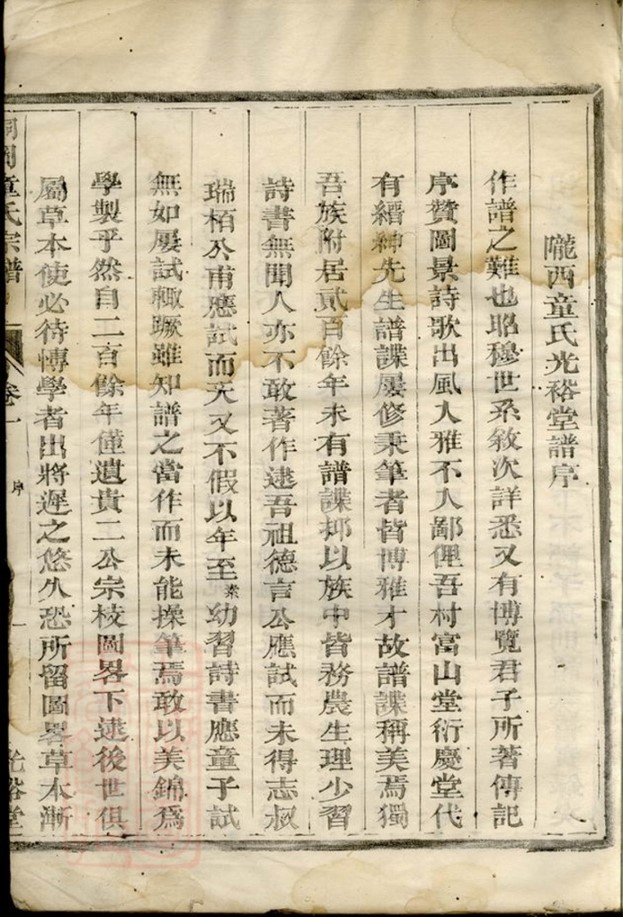 隴西童氏光裕堂譜序
作譜之難也昭穆世系敘次詳悉又有博覽君子所著傳記
序贊圖景詩歌出風入雅不入鄙俚吾村富山堂衍慶堂代
有縉紳先生譜諜屢修秉筆者皆博雅才故譜諜稱美焉獨
吾族附居貳百餘年未有譜諜抑以族中皆務農生理少習
詩書無聞人亦不敢著作逮吾祖德言公應試而未得志叔
瑞栢公甫應試而天又不假以年至業幼習詩書應童子試
無如屢試輒蹶雖知譜之當作而未能操筆焉敢以美錦為
學製乎然自二百餘年僅遺貴二公宗枝圖畧下逮後世俱
屬草本使必待博學者出將遲之悠久恐所留圖畧草本漸
童氏宗譜
卷一
序
一
光裕堂